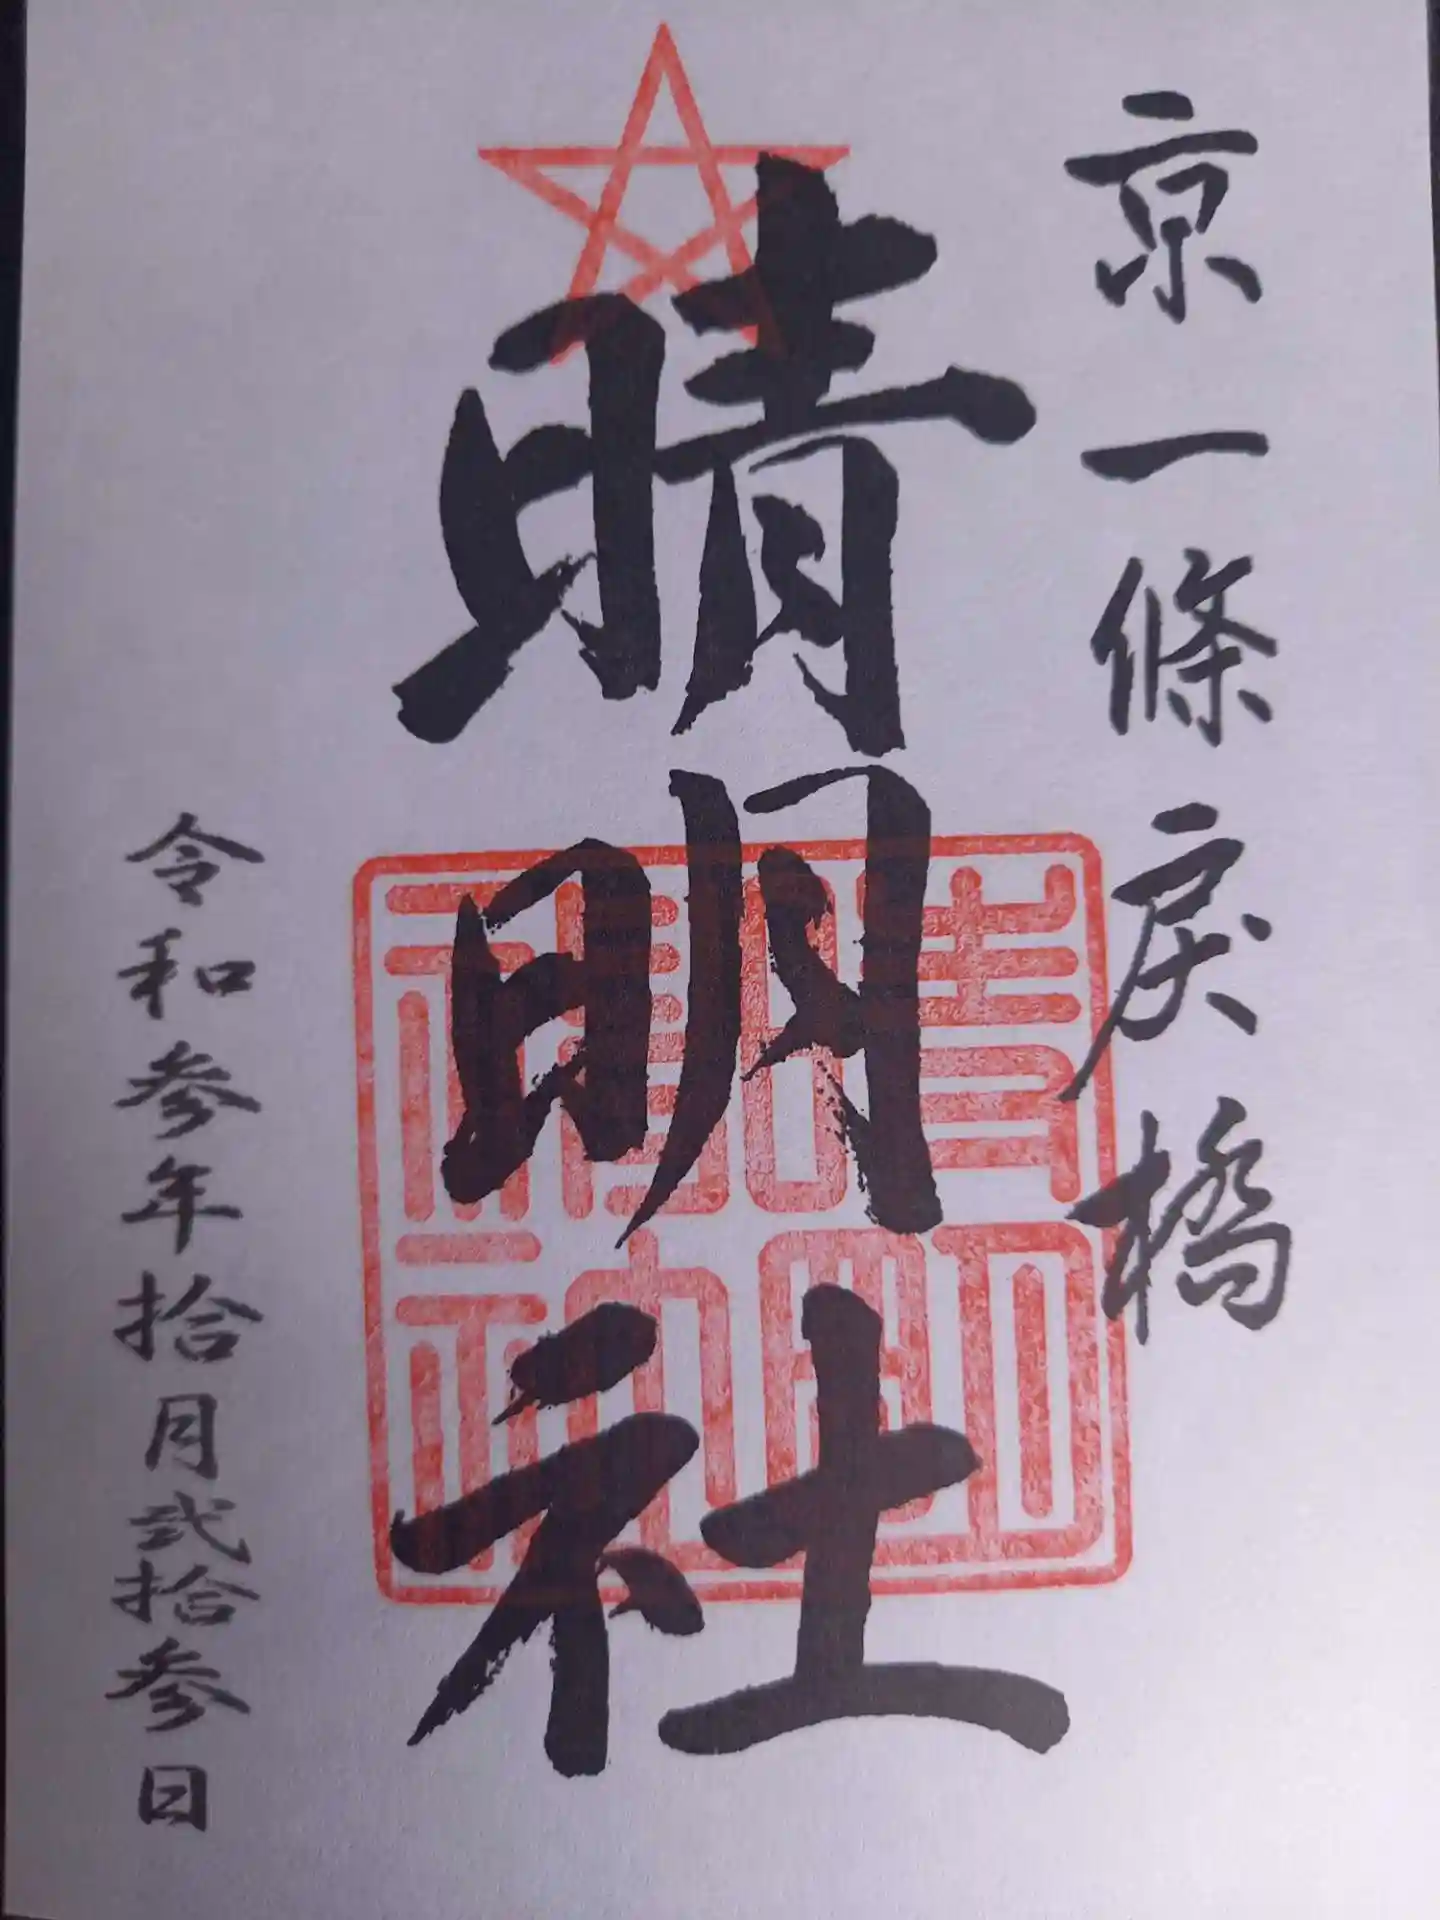 京一條戻橋
晴明社
晴明神社
令和参年拾月弐拾参日